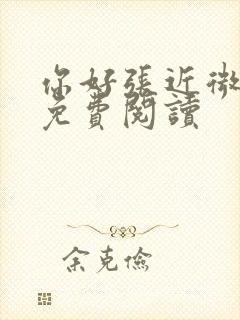 你好張近微
免費閱讀
余克儉